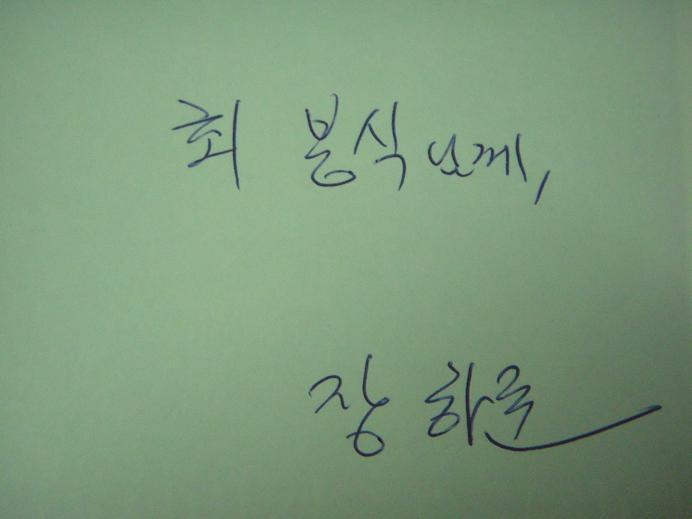 최 봉식 님께,
장하준